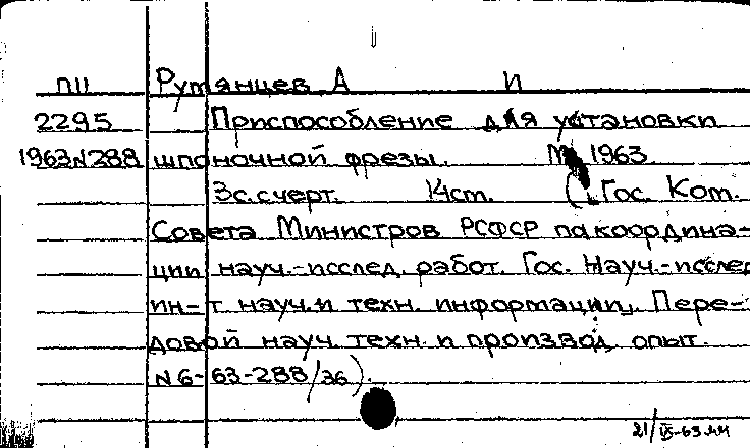 П11 Румянцев А И
2295 Приспособление для установки
1963 N 288 шпоночной фрезы. М 1963
3с.счерт. 14cm. (Гос. Ком.
Совета Министров РСФСР па координа-
ции науч.-исслед. работ. Гос. Науч.-исслед
ин-т науч.и техн. информации, Пере-
довой науч. техн. и производ. опыт.
N 6-63-288/36).
21/IX-63